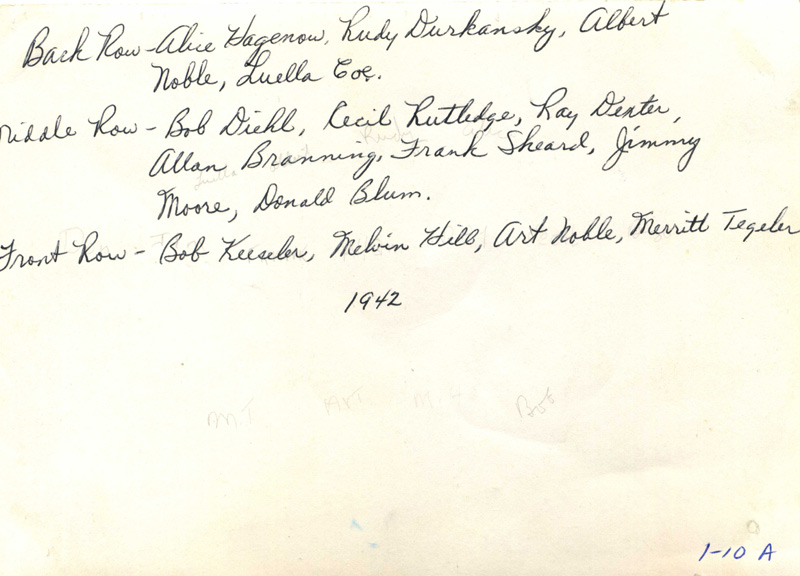 Back Row - Alice Hagenow, Rudy Durkansky, Albert
Noble, Luella Coe.
Middle Row - Bob Diehl, Cecil Rutledge, Ray Dexter,
Allan Branning, Frank Sheard, Jimmy
Moore, Donald Blum.
Front Row - Bob Keeseler, Melvin Hill, Art Noble, Merritt Tegeler
1942
M.T Art M. H Bob
1-10 A